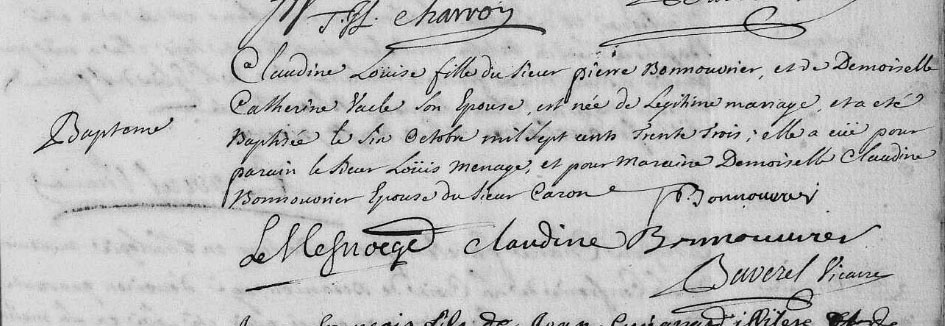 Charvoy
Claudine Loüise fille du Sieur pierre Bonnouvrier, et de Demoiselle
Catherine Vacle Son Epouse, est née de Legitime mariage, et a eté
Baptême
Baptisée le Six Octobre mil Sept cents Trente Trois; elle a eüe pour
parain le Sieur Loüis menage, et pour maraine Demoiselle Claudine
Bonnouvrier Epouse du Sieur Caron
P. Bonnouvrier
Claudine Bonnouvrier
Baverel Vicaire
fils de Jean